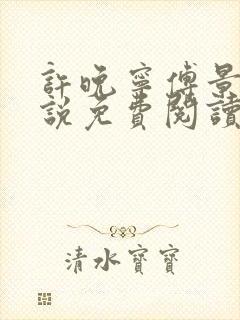 許晚寧傅景
說免費閱讀
清水寶寶